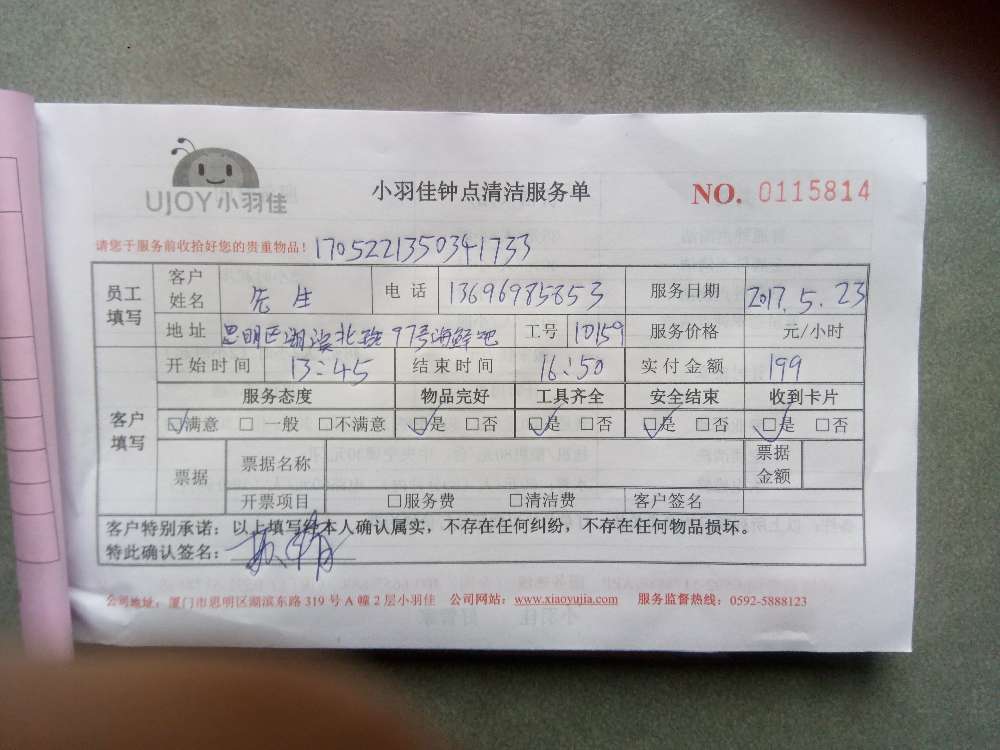 UJOY小羽佳
小羽佳钟点清洁服务单
NO. 0115814
请您于服务前收拾好您的贵重物品! 1705221350341733
员工填写 客户姓名 先生 电话 13696985853 服务日期 2017.5.23
地址 思明区湖滨北路97号海鲜吧 工号 10159 服务价格 元/小时
客户填写 开始时间 13:45 结束时间 16:50 实付金额 199
服务态度 物品完好 工具齐全 安全结束 收到卡片
☑满意 □一般 □不满意 ☑是 □否 ☑是 □否 ☑是 □否 ☑是 □否
票据 票据名称 票据金额
开票项目 □服务费 □清洁费 客户签名
客户特别承诺:以上填写经本人确认属实,不存在任何纠纷,不存在任何物品损坏。
特此确认签名:
公司地址:厦门市思明区湖滨东路 319 号 A 幢 2 层小羽佳 公司网站:www.xiaoyujia.com 服务监督热线:0592-5888123